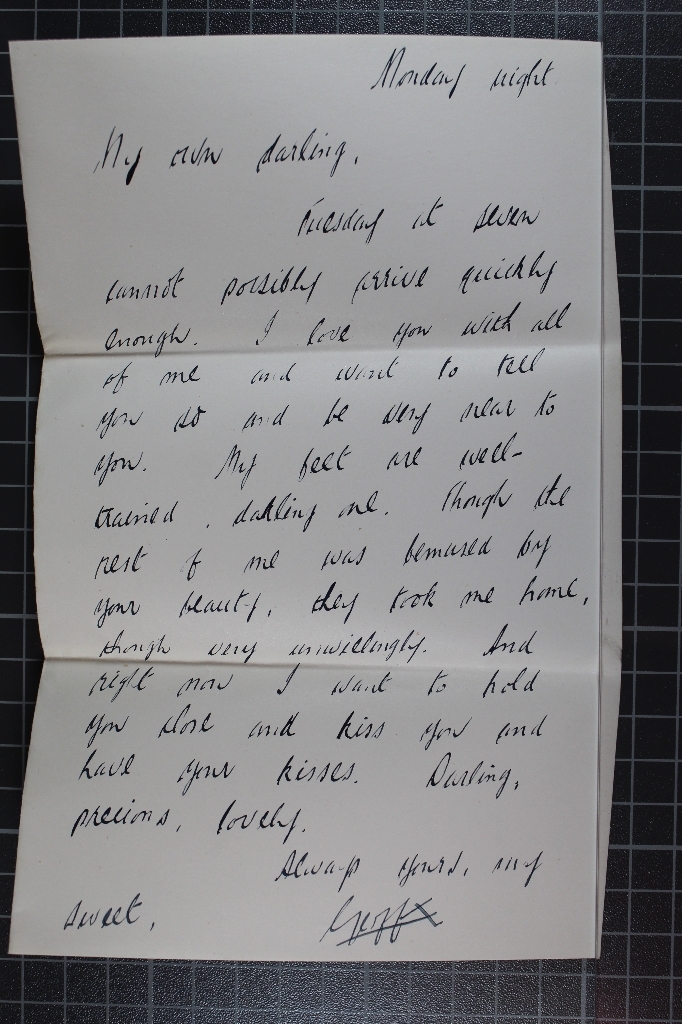 Monday night
My own darling,
Tuesday at seven
cannot possibly arrive quickly
enough. I love you with all
of me and want to tell
you so and be very near to
you. My feet are well-
trained, darling one. Though the
rest of me was bemused by
your beauty, they took me home,
though very unwillingly. And
right now I want to hold
you close and kiss you and
have your kisses. Darling,
precious, lovely.
Always yours, my
sweet,
Geoff X